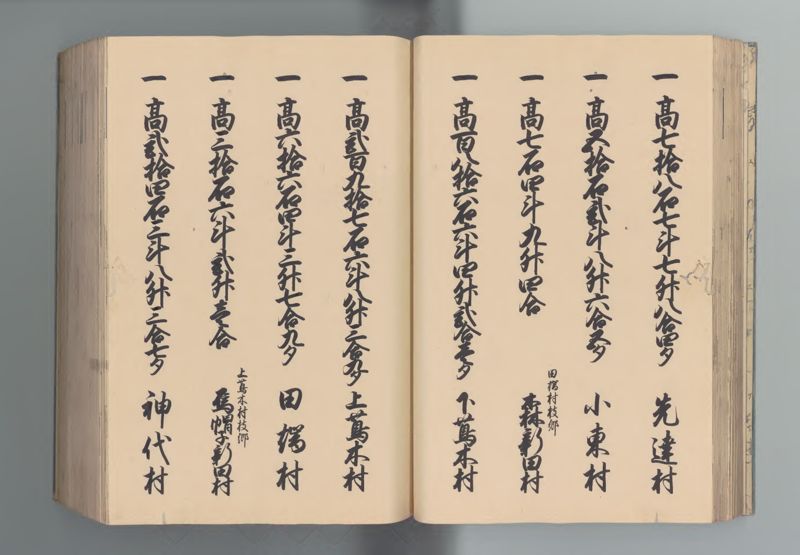 一 高七拾八石七斗七升八合四夕 先達村
一 高五拾石弐斗八升六合五夕 小東村
一 高七石四斗九升四合 田端村枝郷 赤林新田村
一 高百八拾六石六斗四升弐合壱夕 下蔦木村
一 高弐百九拾七石六斗八升三合九夕 上蔦木村
一 高六拾六石四斗三升七合九夕 田端村
一 高三拾石六斗弐升壱合 上蔦木村枝郷 烏帽子新田村
一 高弐拾四石三斗八升三合七夕 神代村